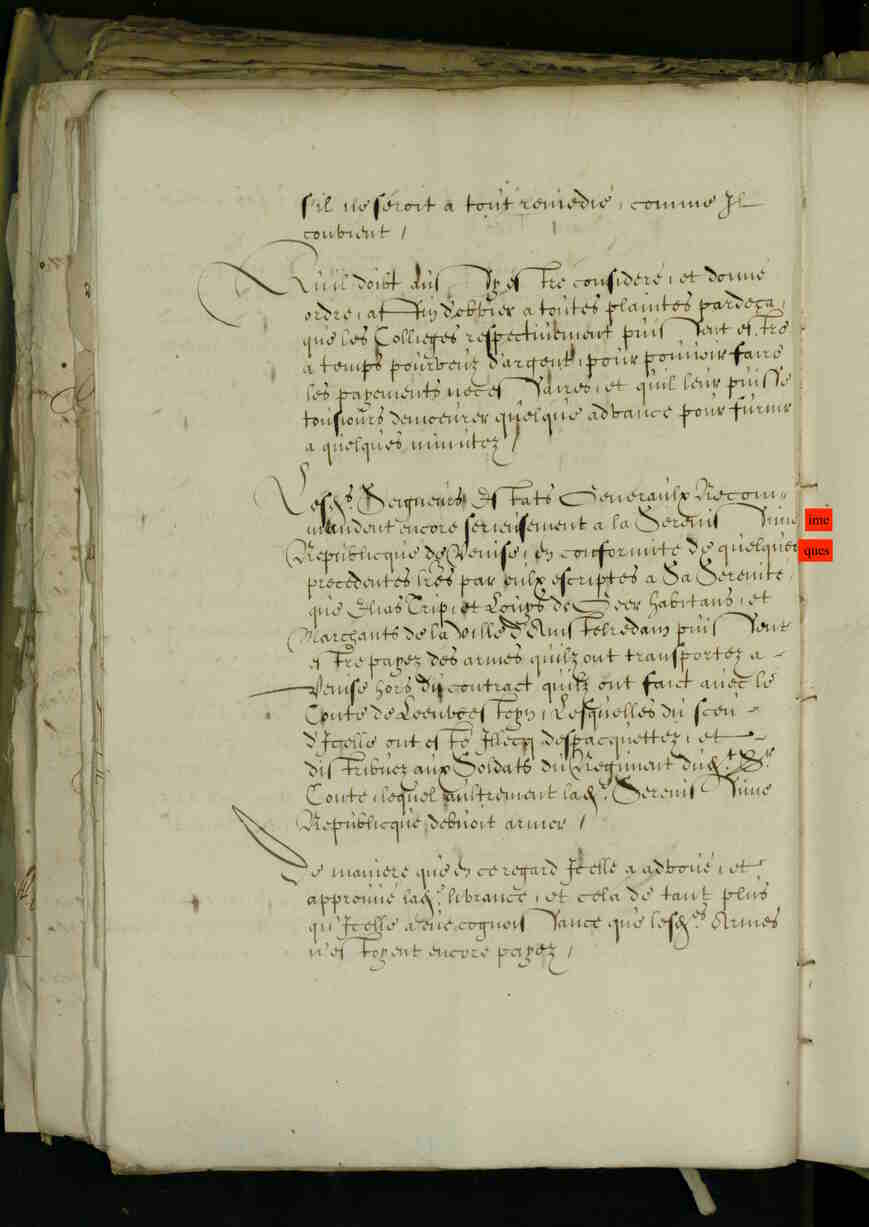 s'il ne seroit a tout remedie, comme Il
convient /
Qu'il doibt aussy estre consideré, et donné
ordre, affin d'obvier a toutes plainctes pardeça,
que les Collieges respectivement puissent estre
a temps pourveuz d'argent, pour pouvoir faire
les payements necessaires, et qu'il leur puisse
tousiours demoeurer quelque advance pour furnir
a quelques minutez /
Lesd.s Seigneurs Estats Generaulx Recom-
mandent encore serieusement a la Serenissime
ime
Republicque de Venise, en conformite de quelques
ques
precedentes lres par eulx escriptes a Sa Serenité,
que Elias Trip, et Louys de Geer habitans, et
Marchants de la Ville d'Amstelredam puissent
estre payez des armes qu'ilz ont transportez a
Venise hors du contract qu'ilz ont faict avec le
Conte de Levensteyn, Lesquelles du sceu
d'Icelle ont esté Illecq despacquettez, et
distribuez aux Soldats du Regiment dud.t Sr
Conte, lequel aultrement lad.e Serenissime
Republicque debvoit armer /
De maniere qu'en ce regard Icelle a advoué, et
approuvé lad.e livrance, et cela de tant plus
qu'Icelle a eue cognoissance que lesd.es Armes
n'estoyent encore payez /